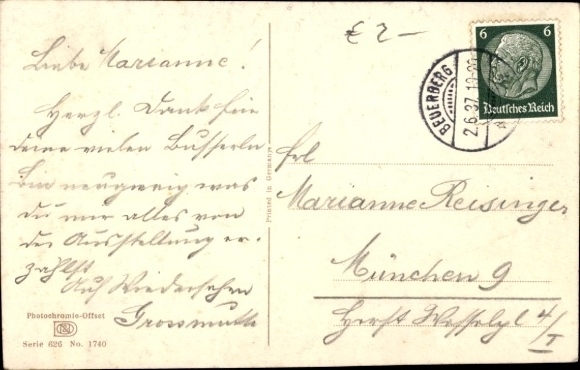 € 2-
6 6
Deutsches Reich
BEUERBERG
2.6.37.
Liebe Marianne!
Herzl. Dank für
deine vielen Busserln
bin neugierig was
du mir alles von
der Ausstellung er-
zählst
Auf Wiedersehen
Grossmutti
Printed in Germany
Frl
Marianne Reisinger
München 9
Horst Wesselpl 4/I
Photochromie-Offset
Serie 626 No. 1740